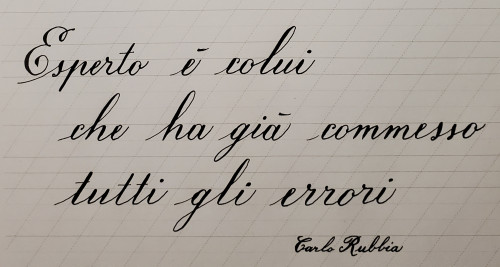 Esperto è colui
che ha già commesso
tutti gli errori
Carlo Rubbia